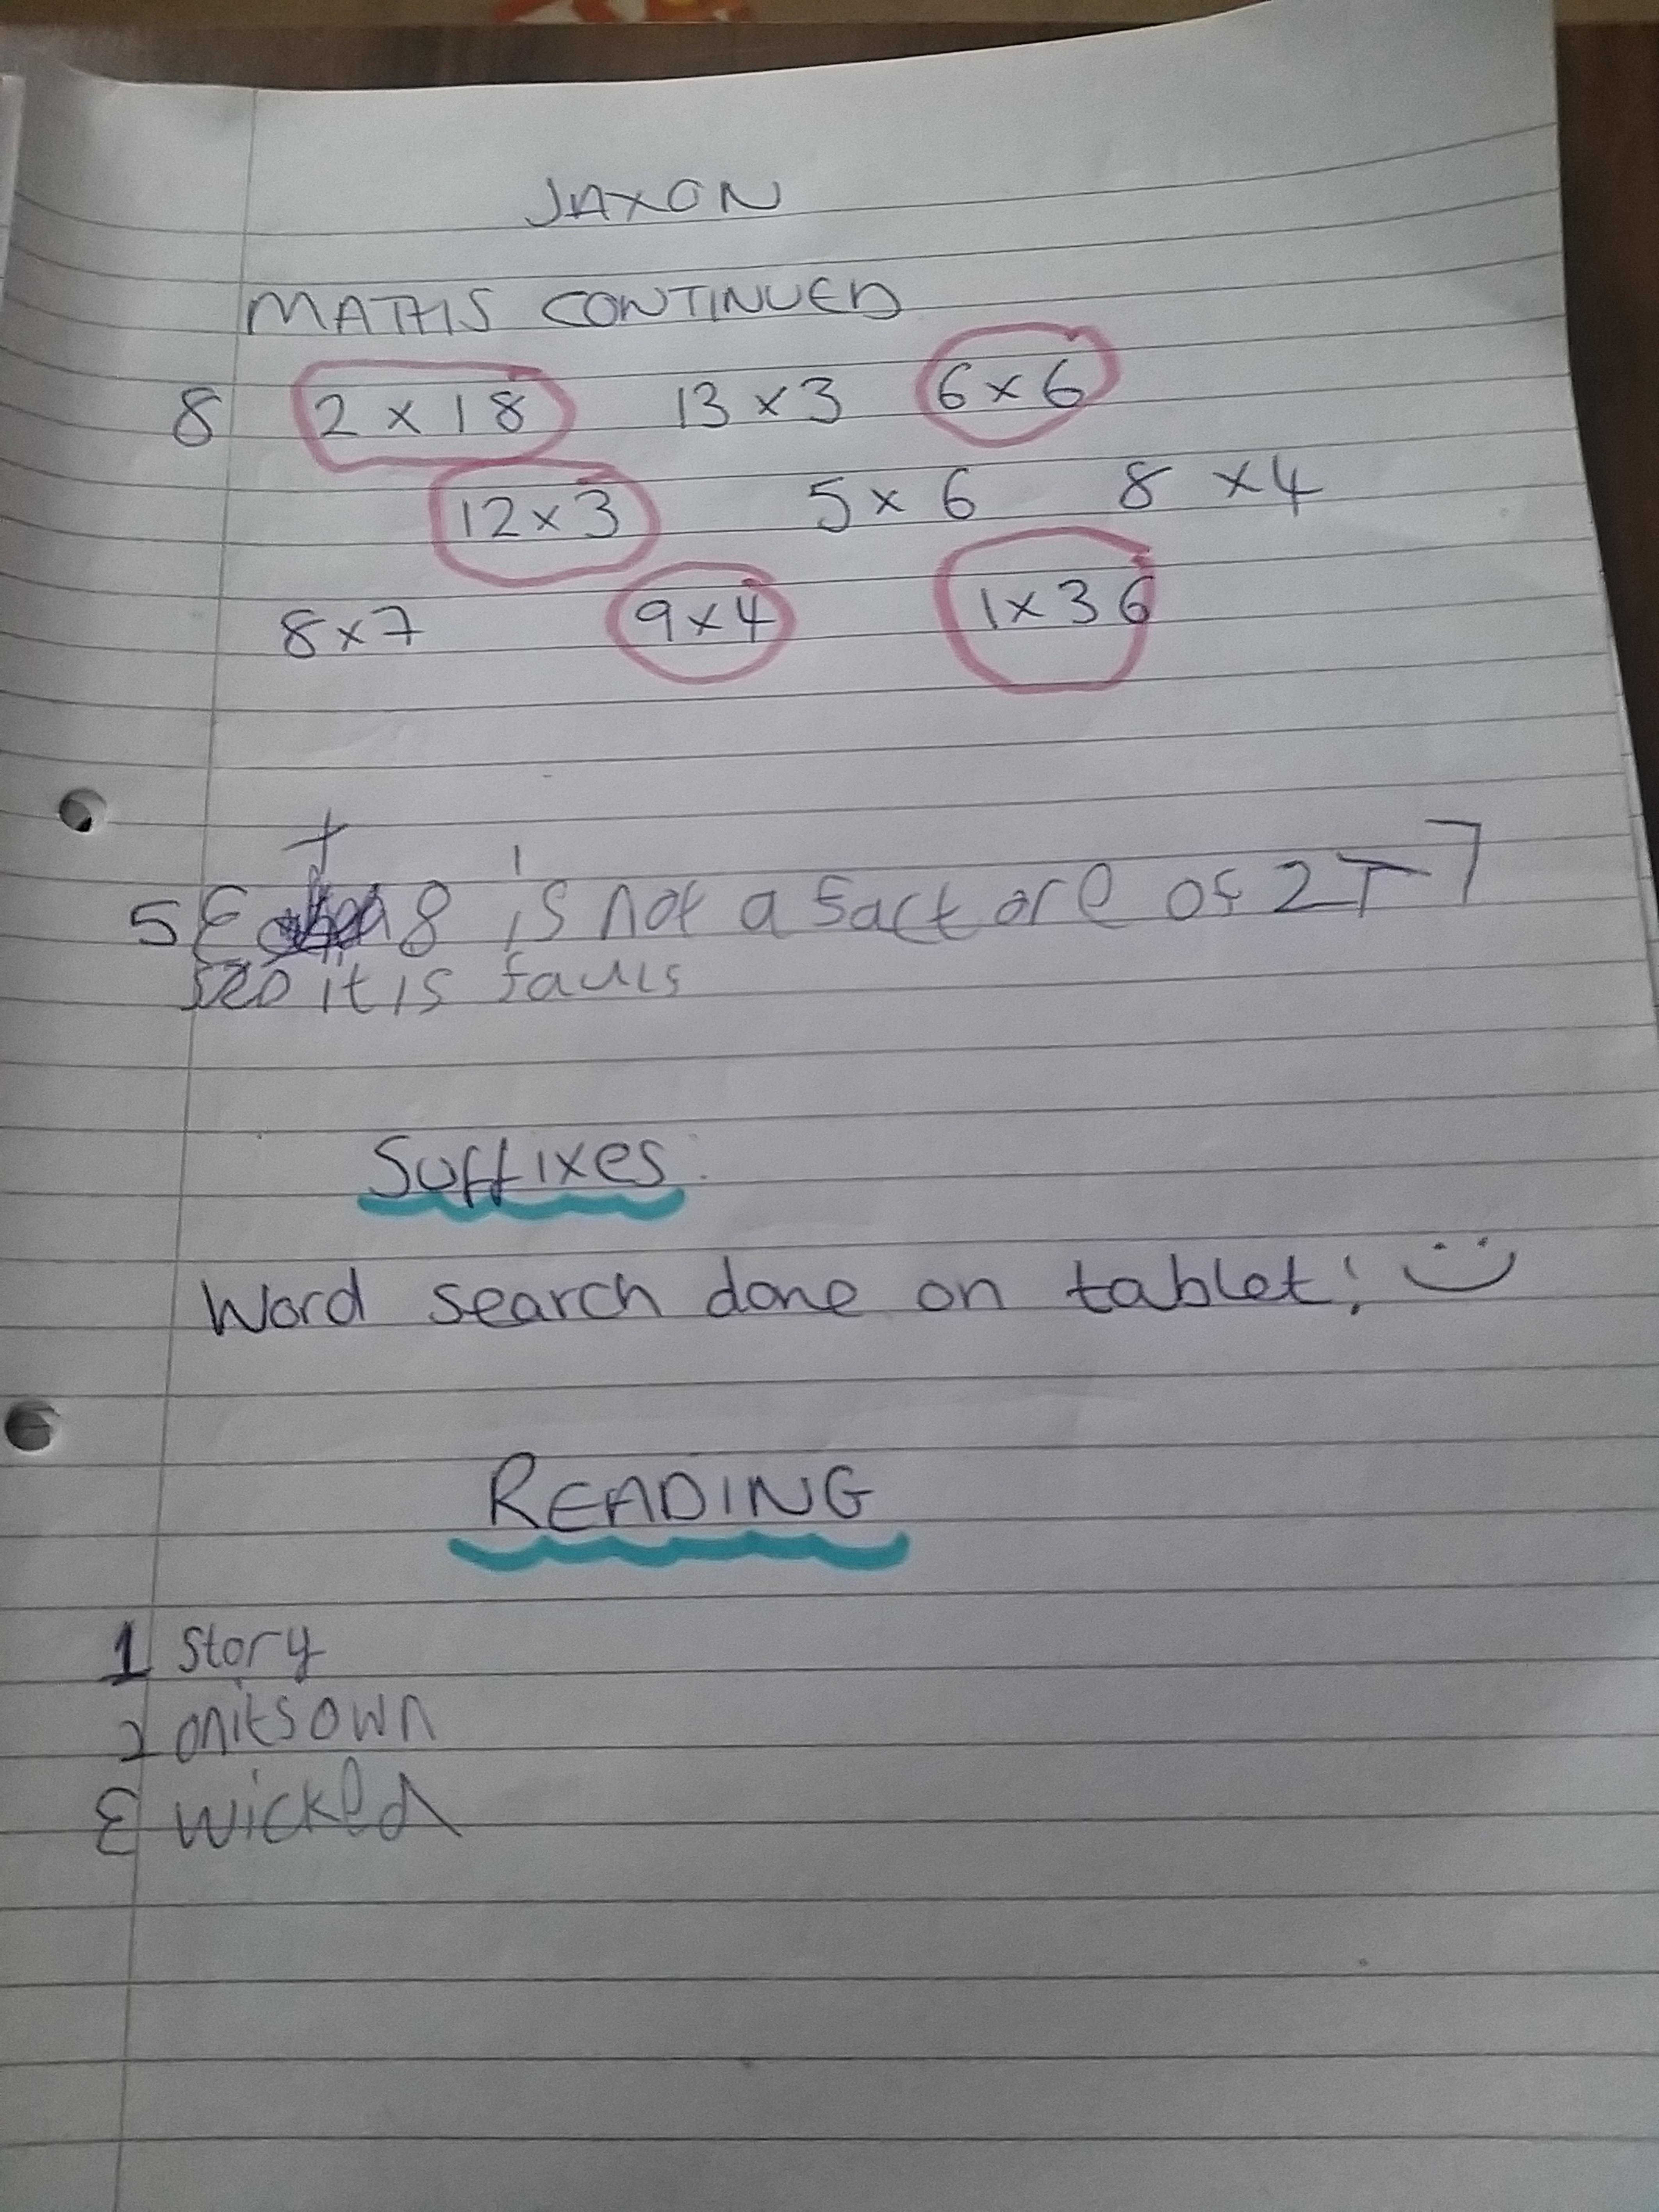 JAXON
MATHS CONTINUED
8 2 x 18 13 x 3 6 x 6
12 x 3 5 x 6 8 x 4
8 x 7 9 x 4 1 x 36
5 8 is not a factore of 27
so it is fauls
Suffixes
Word search done on tablet!
READING
1 story
2 onitsown
3 wicked